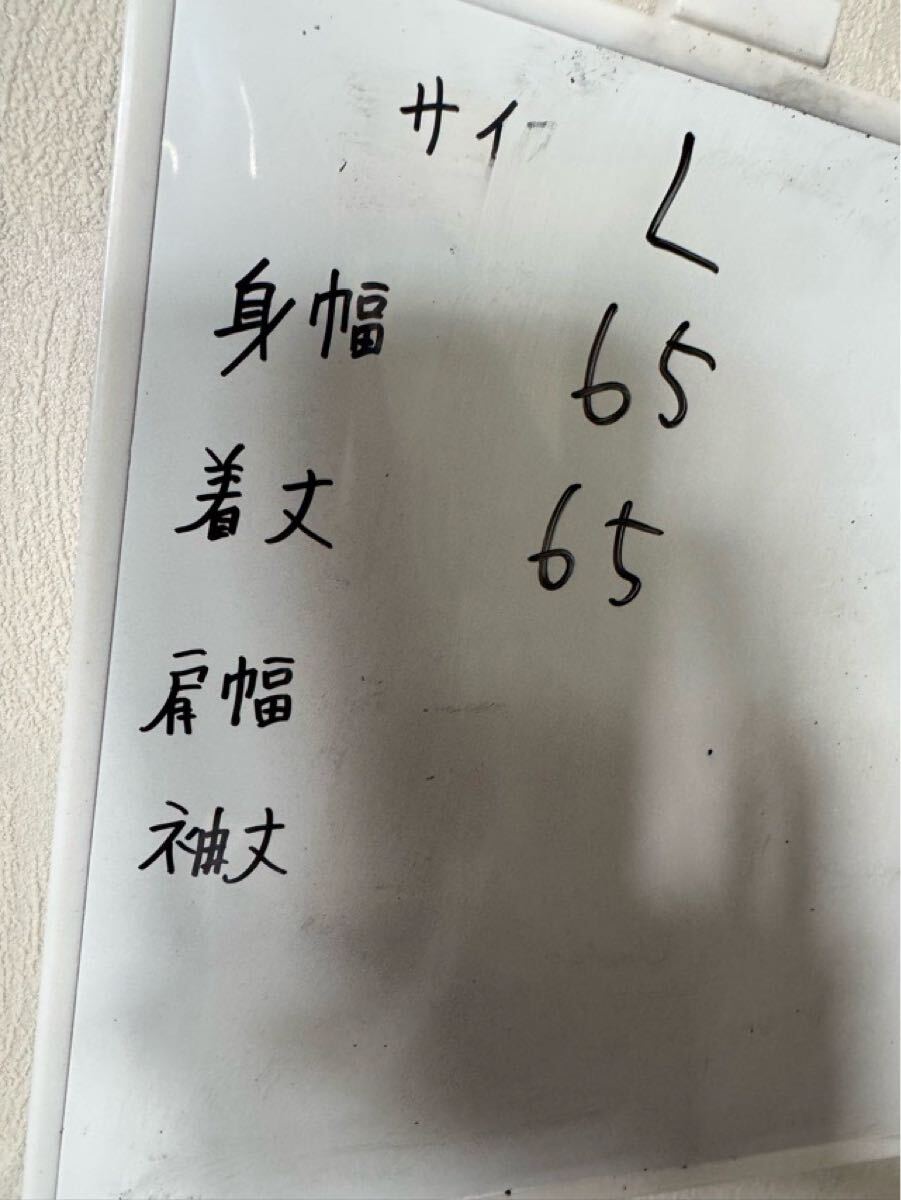 サイ L
身幅 65
着丈 65
肩幅
袖丈